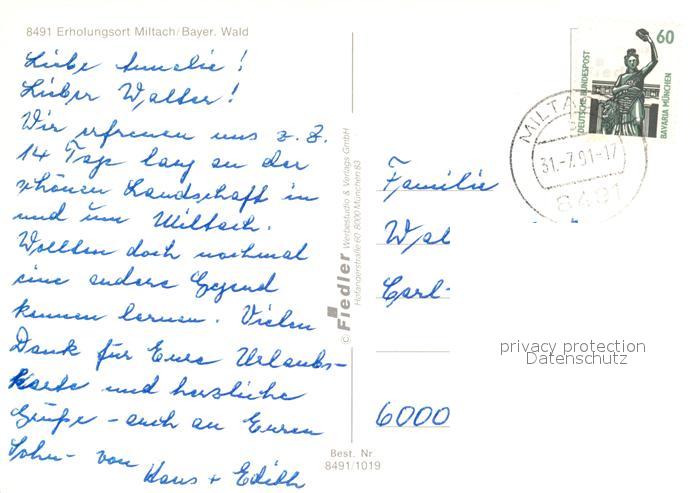 8491 Erholungsort Miltach/Bayer. Wald
Liebe Amalie!
Lieber Walter!
Wir erfreuen uns z. Z.
14 Tage lang an der
schönen Landschaft in
und um Miltach.
Wollten doch nochmal
eine andere Gegend
kennen lernen. Vielen
Dank für Eure Urlaubs-
karte und herzliche
Grüße - auch an Euren
Sohn - von
Hans + Edith
© Fiedler Werbestudio & Verlags GmbH
Hofangerstraße 60 8000 München 83
Best. Nr
8491/1019
60
DEUTSCHE BUNDESPOST
BAVARIA MÜNCHEN
31.-7.91-17
8491
Familie
Wal
Carl-
privacy protection
Datenschutz
6000